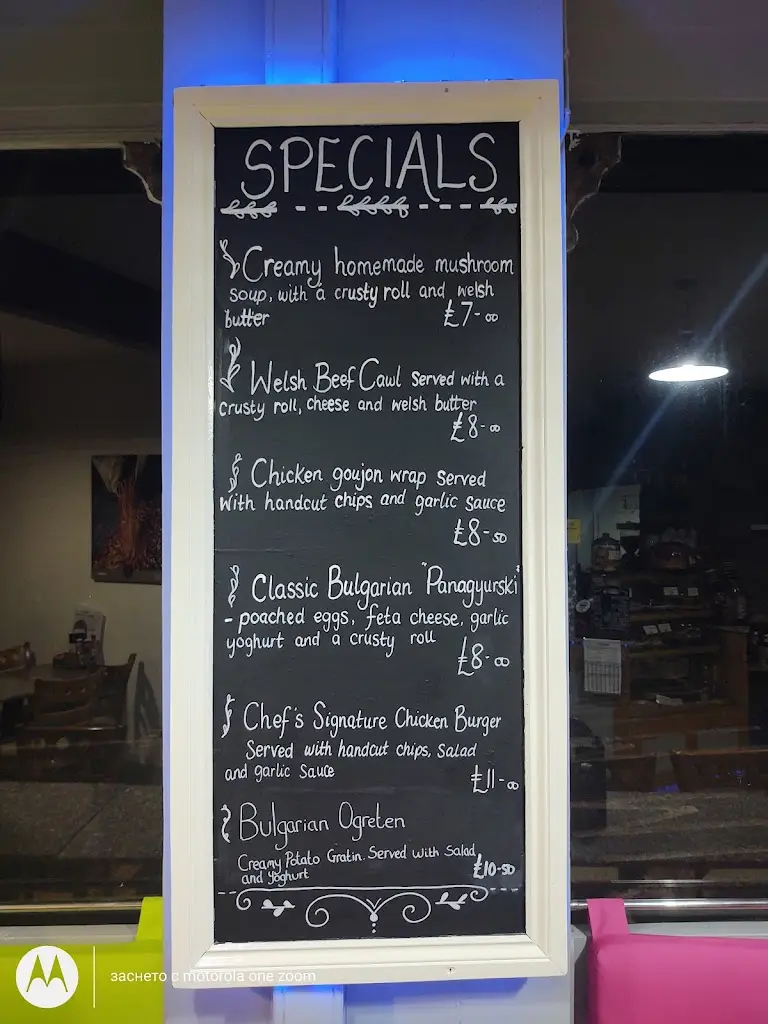 SPECIALS
Creamy homemade mushroom
soup, with a crusty roll and welsh
butter £7-00
Welsh Beef Cawl Served with a
crusty roll, cheese and welsh butter
£8-00
Chicken goujon wrap served
with handcut chips and garlic sauce
£8-50
Classic Bulgarian "Panagyurski"
- poached eggs, feta cheese, garlic
yoghurt and a crusty roll
£8-00
Chef's Signature Chicken Burger
Served with handcut chips, salad
and garlic sauce £11-00
Bulgarian Ogreten
Creamy Potato Gratin. Served With Salad
and Yoghurt £10-50
заснето с motorola one zoom